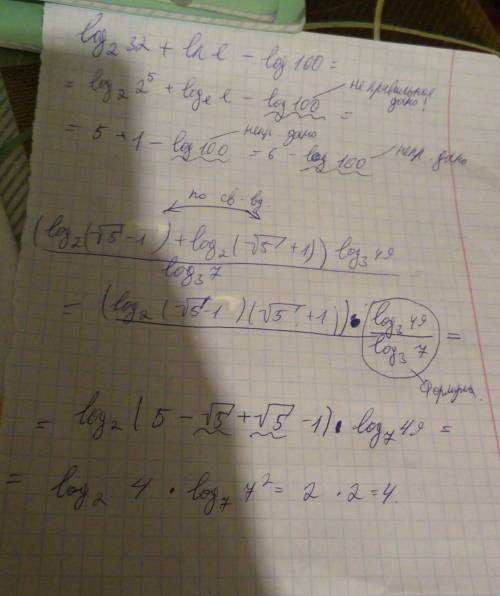 log₂ 32 + ln e − log 100 =
= log₂ 2⁵ + logₑ e − log 100 = неправильное дано!
= 5 + 1 − log 100 непр. дано = 6 − log 100 непр. дано
по св-ву
(log₂(√5 − 1) + log₂(√5 + 1)) log₃ 49
log₃ 7
= (log₂ (√5 − 1)(√5 + 1)) · log₃ 49 =
log₃ 7
Формула.
= log₂ (5 − √5 + √5 − 1) · log₇ 49 =
= log₂ 4 · log₇ 7² = 2 · 2 = 4.